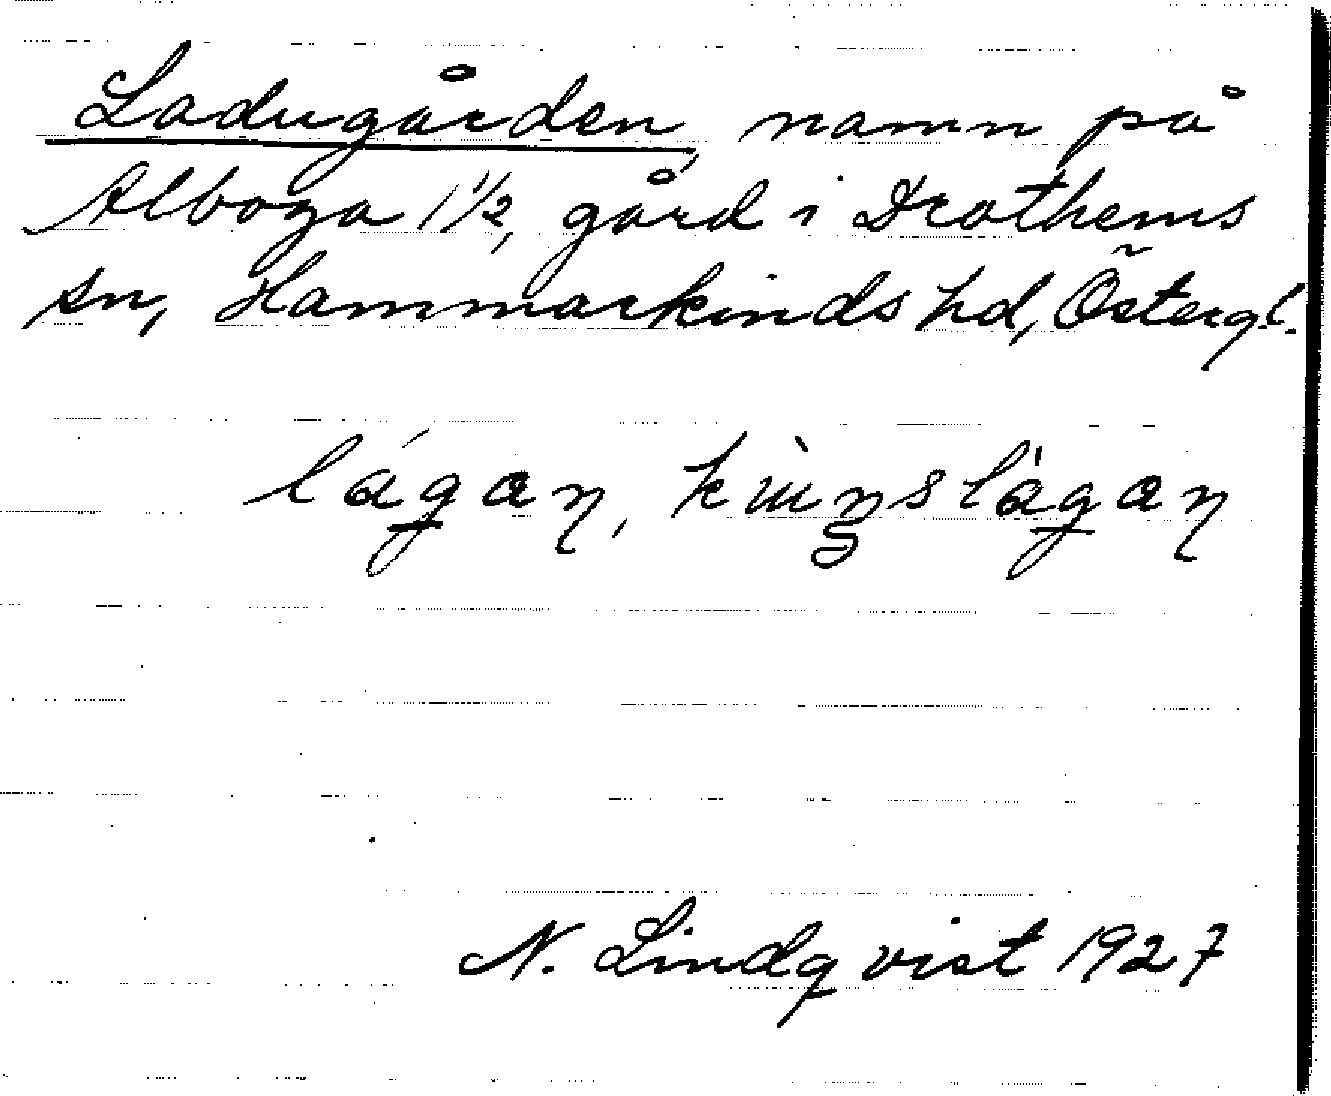 Ladugården, namn på
Alboga 1 1/2, gård i Drothems
sn, Hammarkinds hd, Östergl.
lágan,
N. Lindqvist 1927